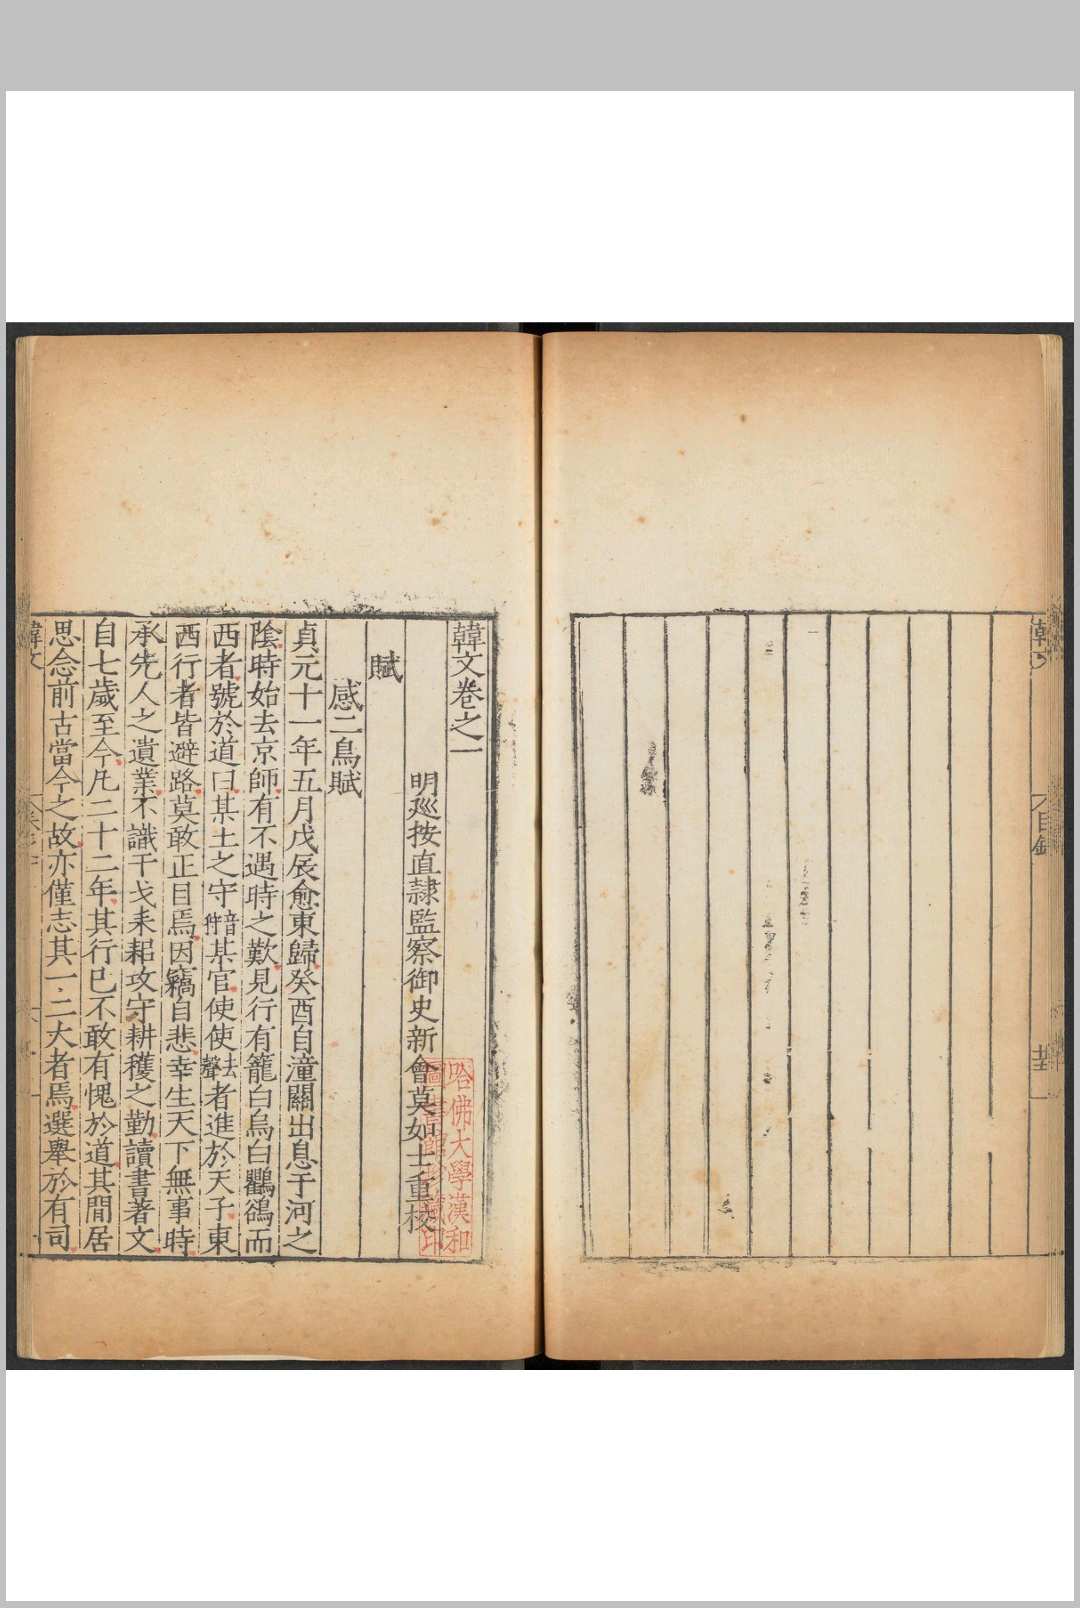 目錄
韓文卷之一
明廵按直隷監察御史新會莫如士重校
賦
感二鳥賦
貞元十一年五月戊辰愈東歸癸酉自潼關出息于河之
陰時始去京師有不遇時之歎見行有籠白烏白鸜鵒而
西者號於道曰某土之守音狩某官使使去聲者進於天子東
西行者皆避路莫敢正目焉因竊自悲幸生天下無事時
承先人之遺業不識干戈耒耜攻守耕穫之勤讀書著文
自七歲至今凡二十二年其行已不敢有愧於道其閒居
思念前古當今之故亦僅志其一二大者焉選舉於有司
韓文
哈佛大學漢和
圖書館珍藏印